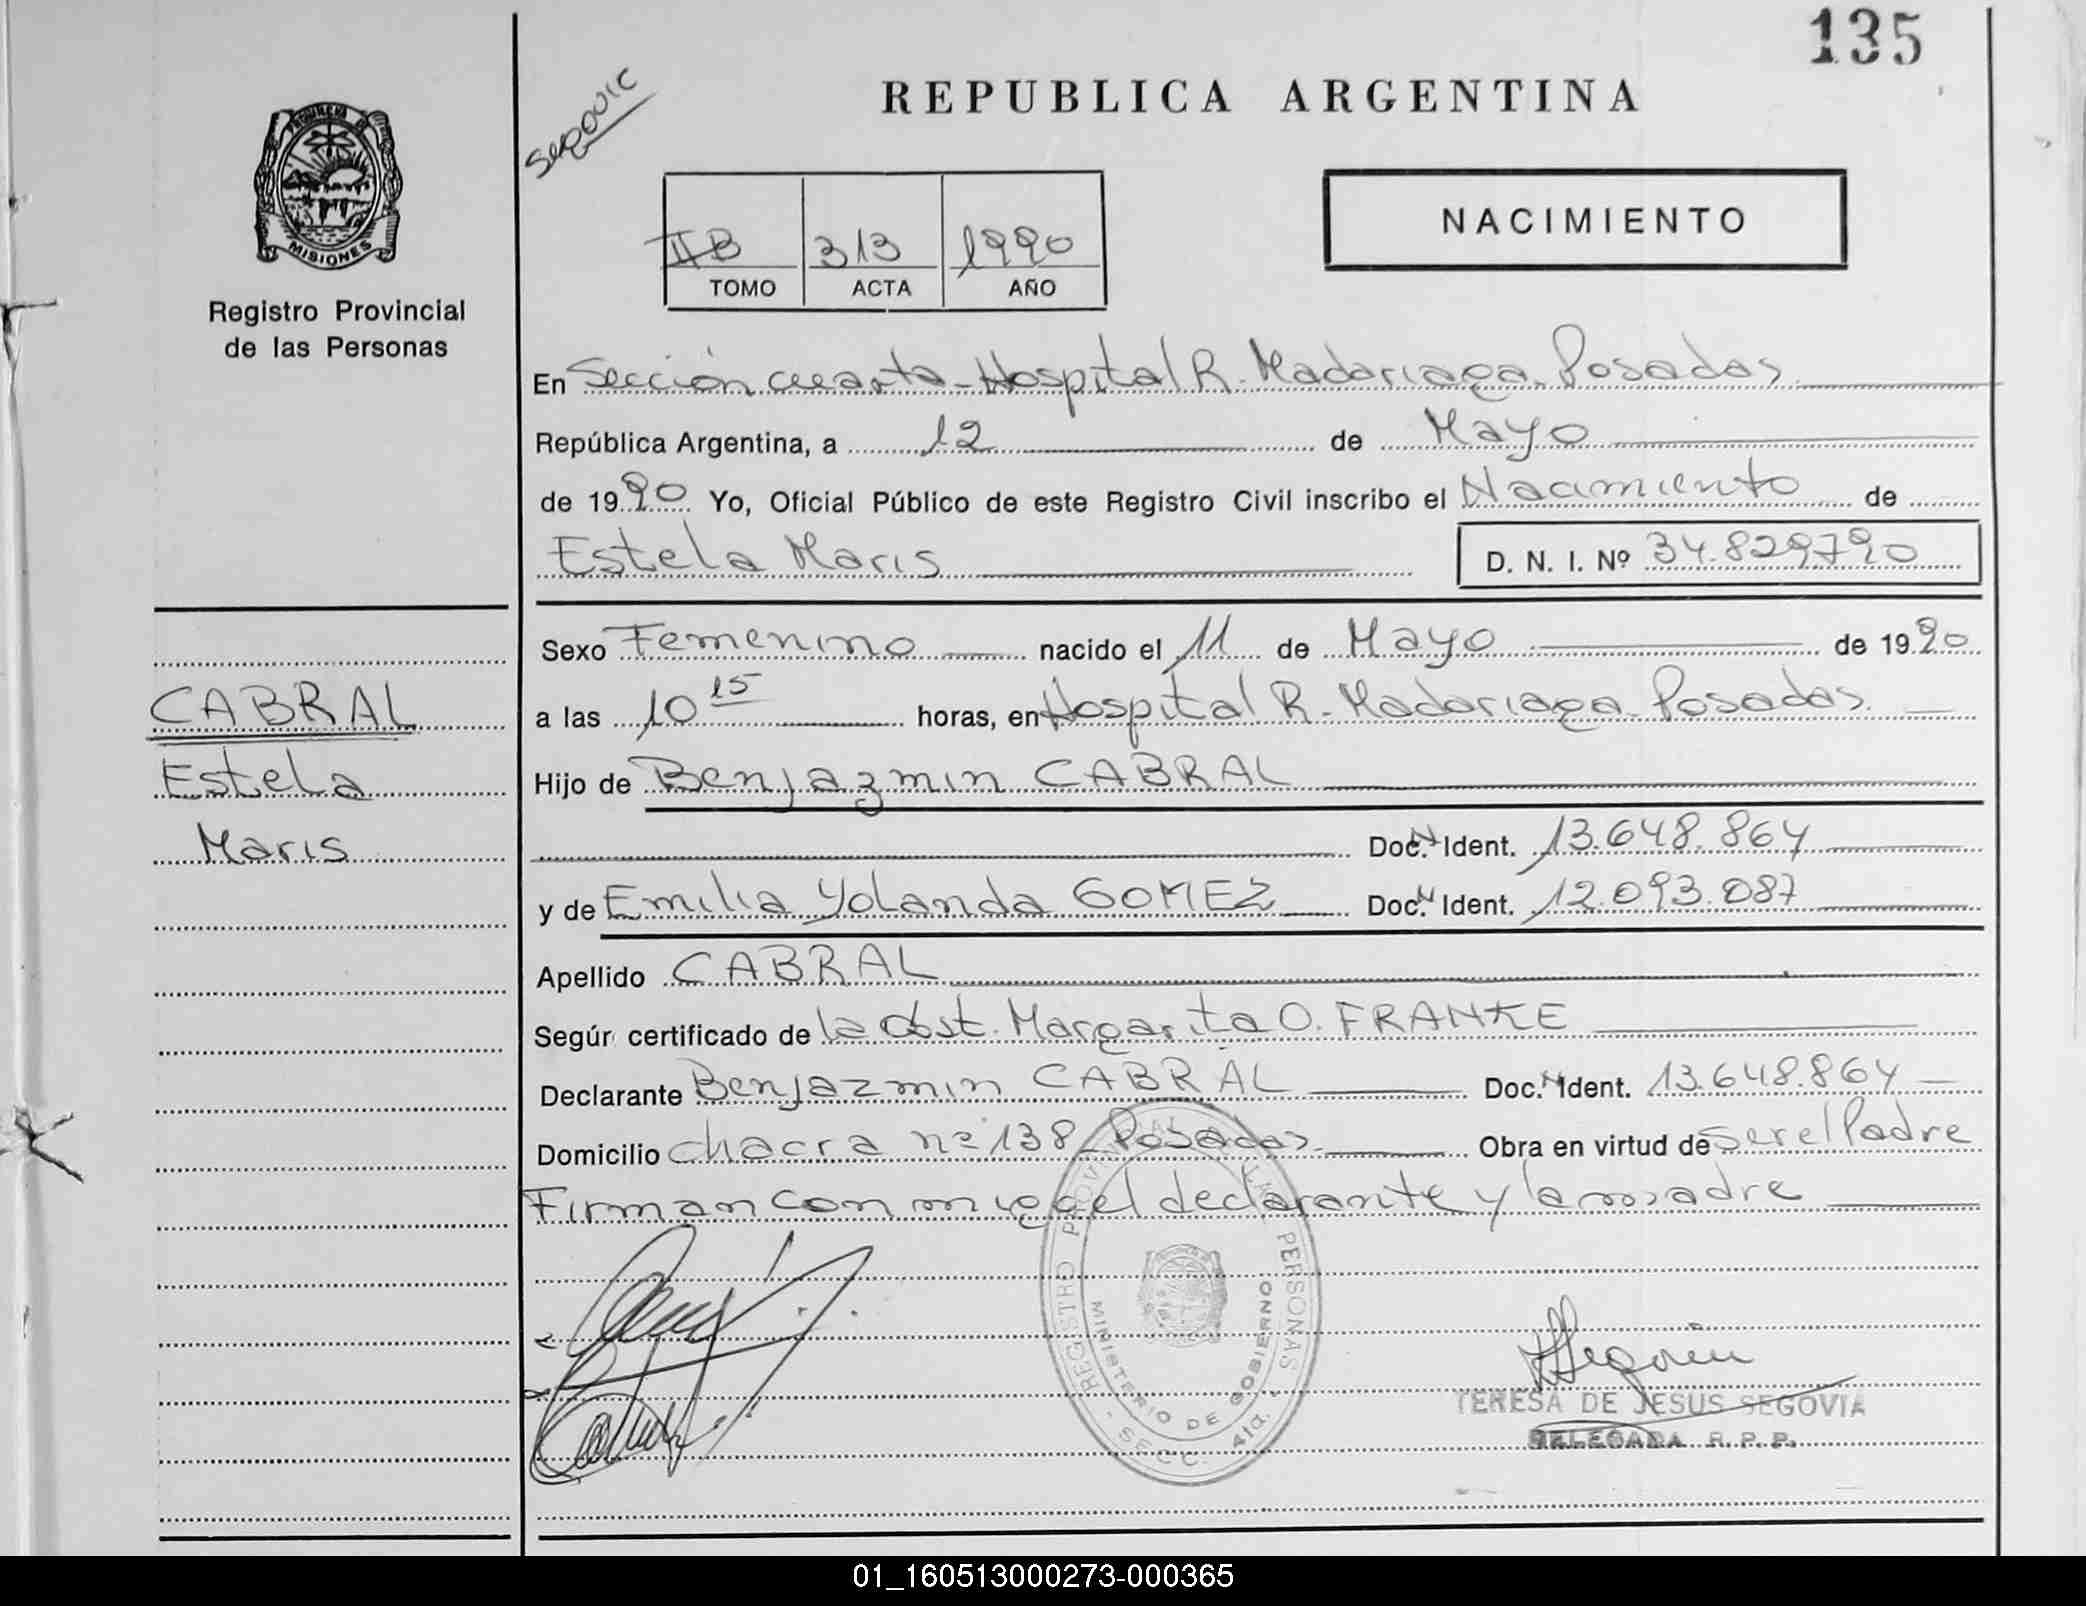 135
REPUBLICA ARGENTINA
PROVINCIA DE
MISIONES
Registro Provincial
de las Personas
II B 313 1990
TOMO ACTA AÑO
NACIMIENTO
En Sección cuarta - Hospital R. Madariaga. Posadas
República Argentina, a 12 de Mayo
de 1990 Yo, Oficial Público de este Registro Civil inscribo el Nacimiento de
Estela Maris D. N. I. Nº 34.829790
Sexo Femenino nacido el 11 de Mayo de 1990
a las 10 15 horas, en Hospital R. Madariaga - Posadas.
Hijo de Benjazmin CABRAL
Doc. N Ident. 13.648.864
y de Emilia Yolanda GOMEZ Doc. N Ident. 12.093.087
Apellido CABRAL
Según certificado de la obst. Margarita O. FRANKE
Declarante Benjazmin CABRAL Doc. N Ident. 13.648.864
Domicilio Chacra nº 138 - Posadas Obra en virtud de ser el Padre
Firman conmigo el declarante y la madre
CABRAL
Estela
Maris
REGISTRO PERSONAS
MINISTERIO DE GOBIERNO
SECC. 4ta.
TERESA DE JESUS SEGOVIA
DELEGADA R. P. P.
01_160513000273-000365